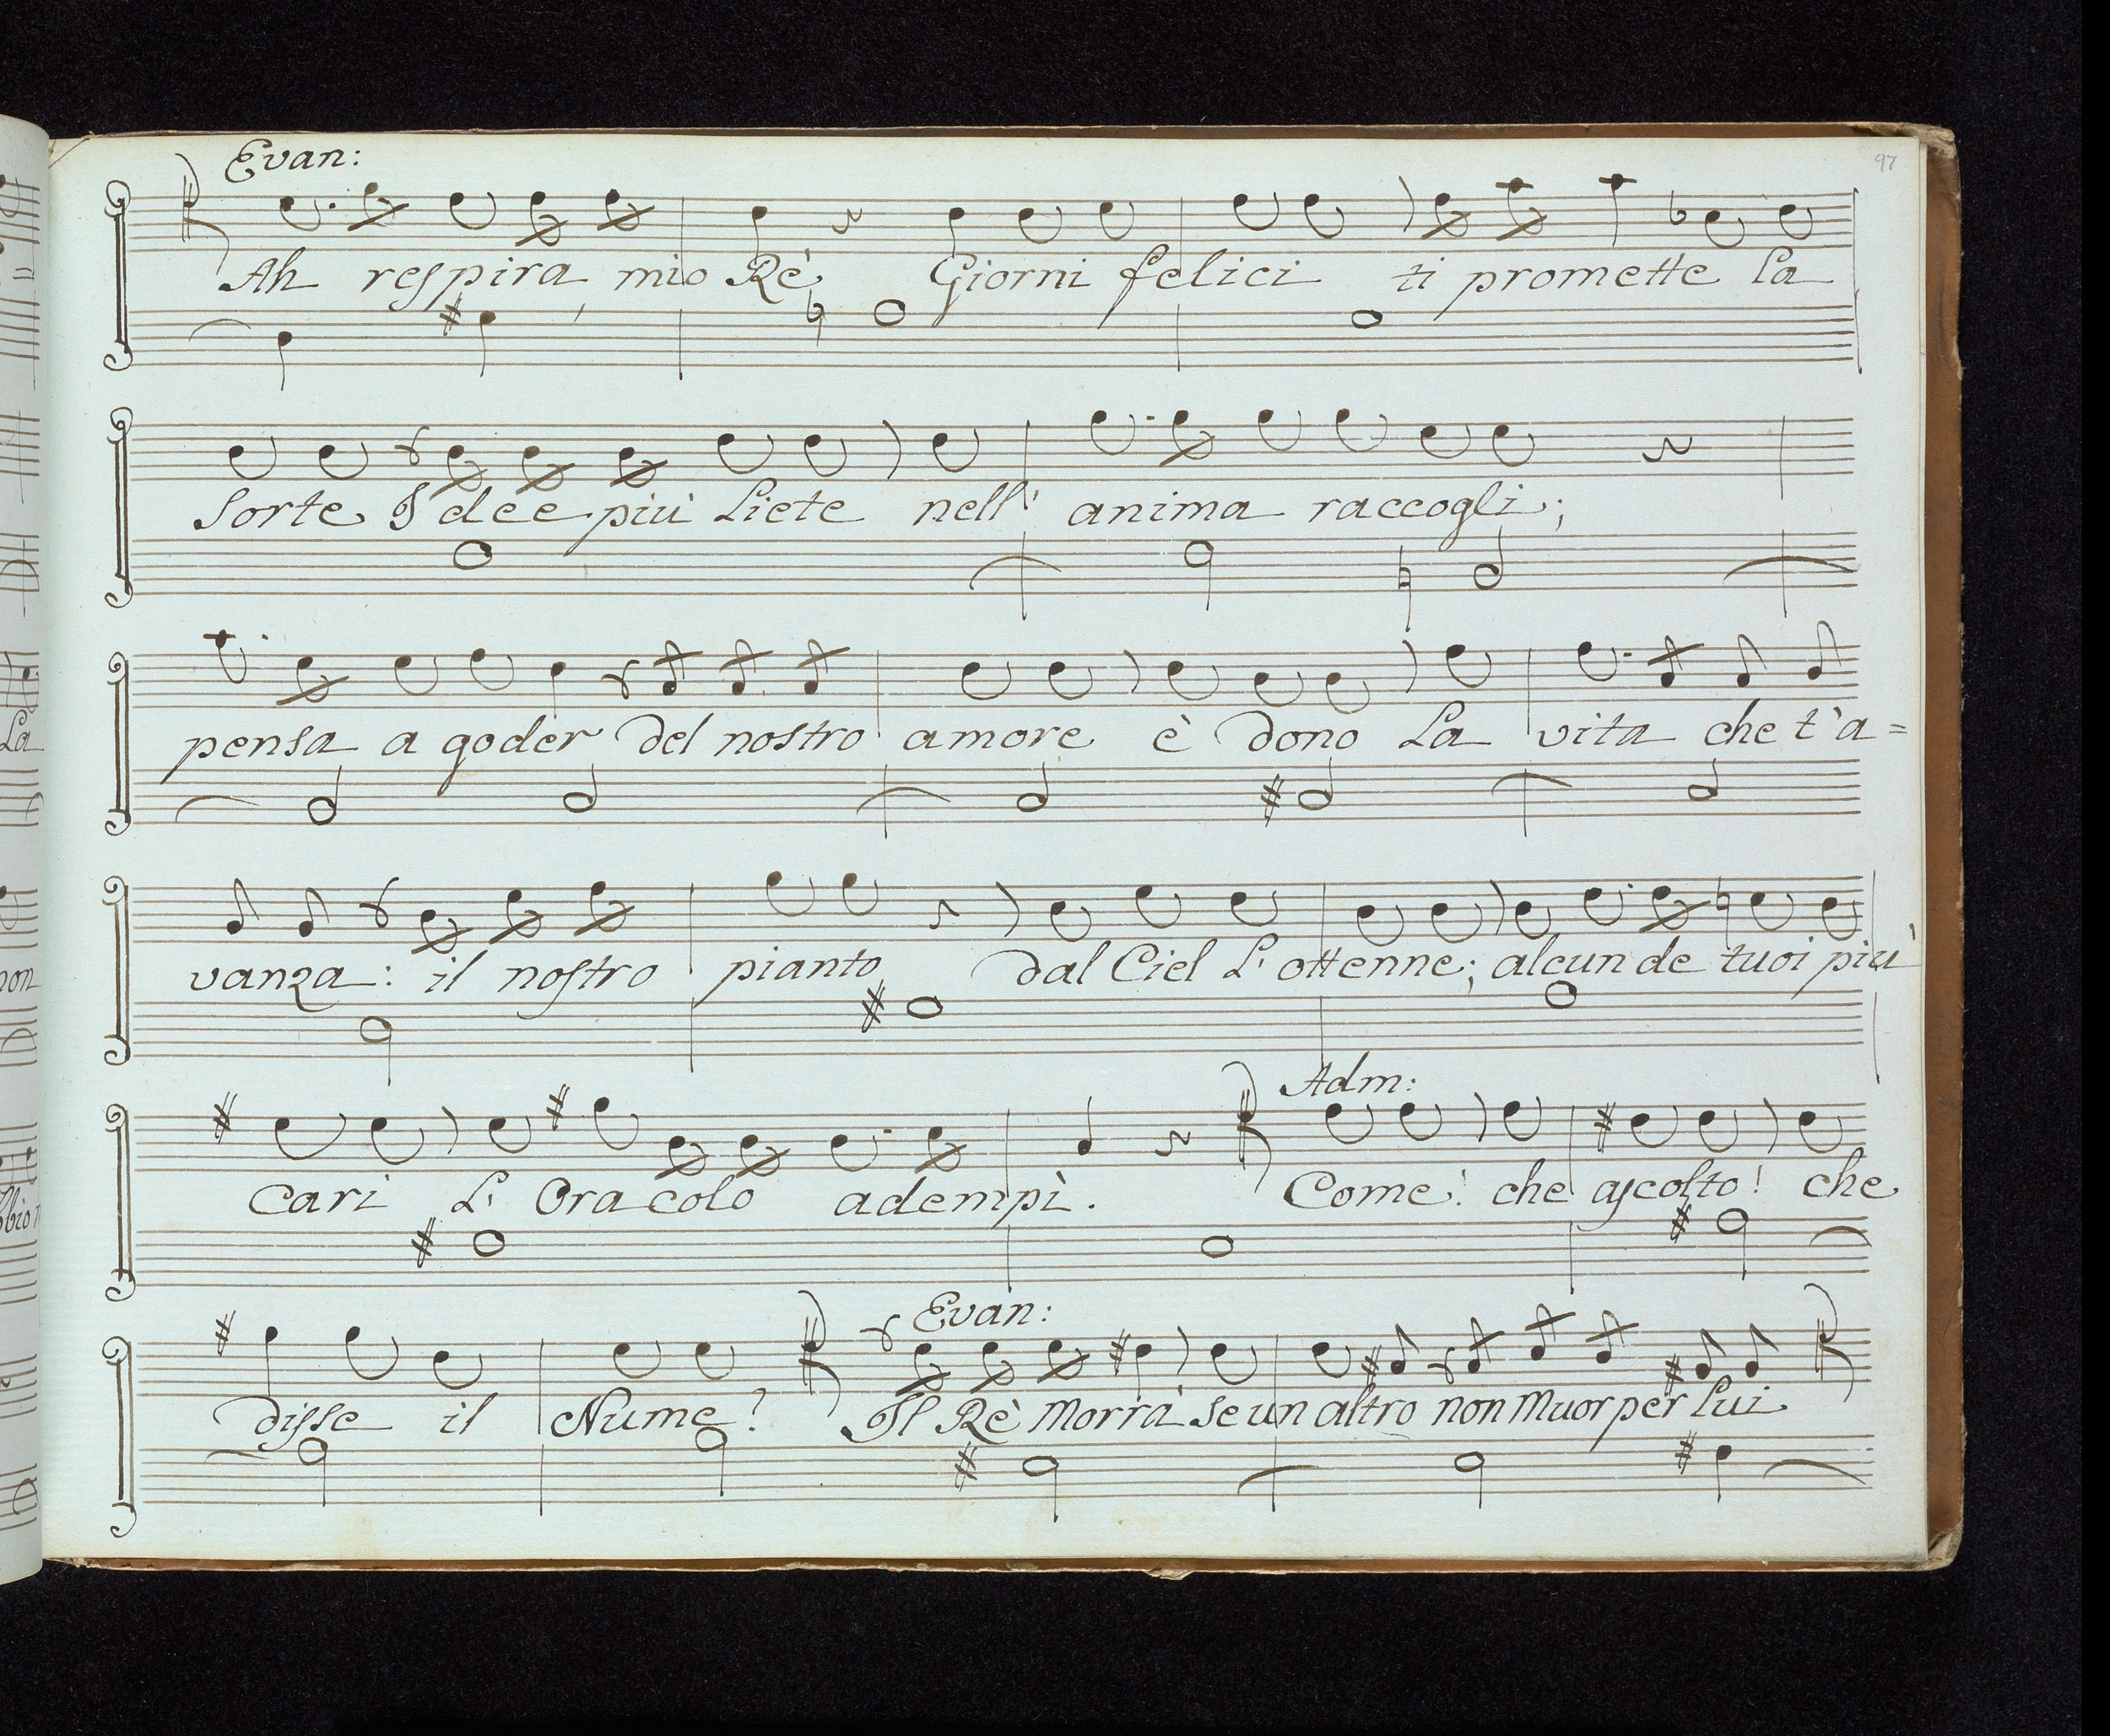 97
Evan:
Ah respira mio Rè Giorni felici ti promette La
Sorte Idee più Liete nell' anima raccogli;
pensa a goder del nostro amore è dono La vita che t'a=
vanza: il nostro pianto dal Ciel L' ottenne; alcun de tuoi più
Adm:
Cari L' Oracolo adempì. Come! che ascolto! che
Evan:
disse il Nume? Il Rè Morrà se un altro non Muor per Lui
La
non